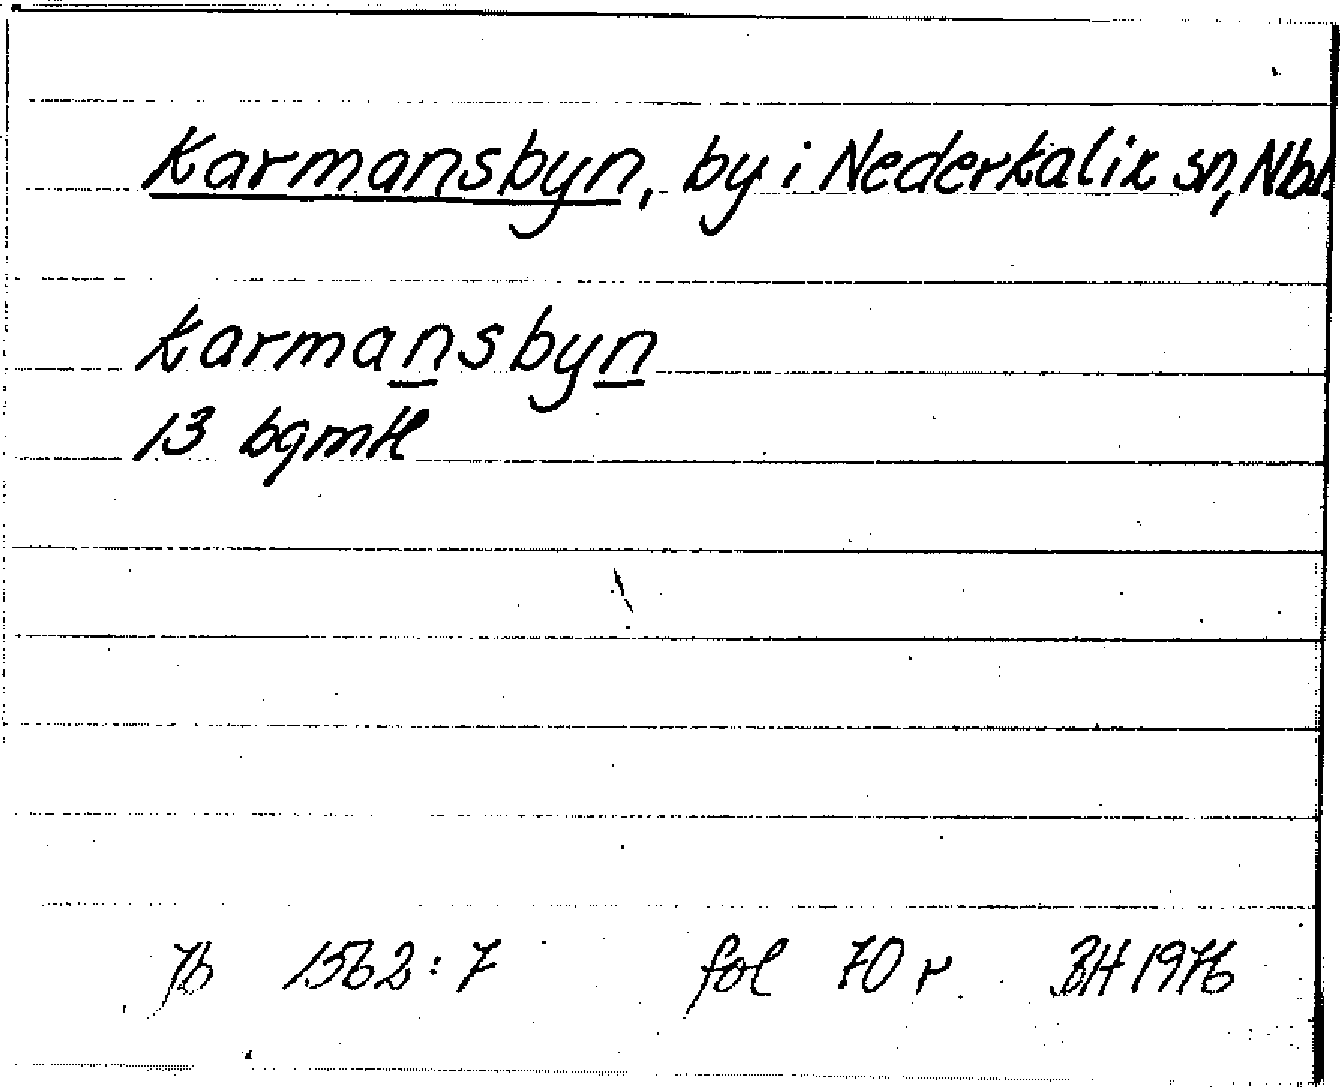 Karmansbyn, by i Nederkalix sn, Nbl
Karmansbyn
13 bgmtl
Jb 1562:7 fol 70 r BH 1976